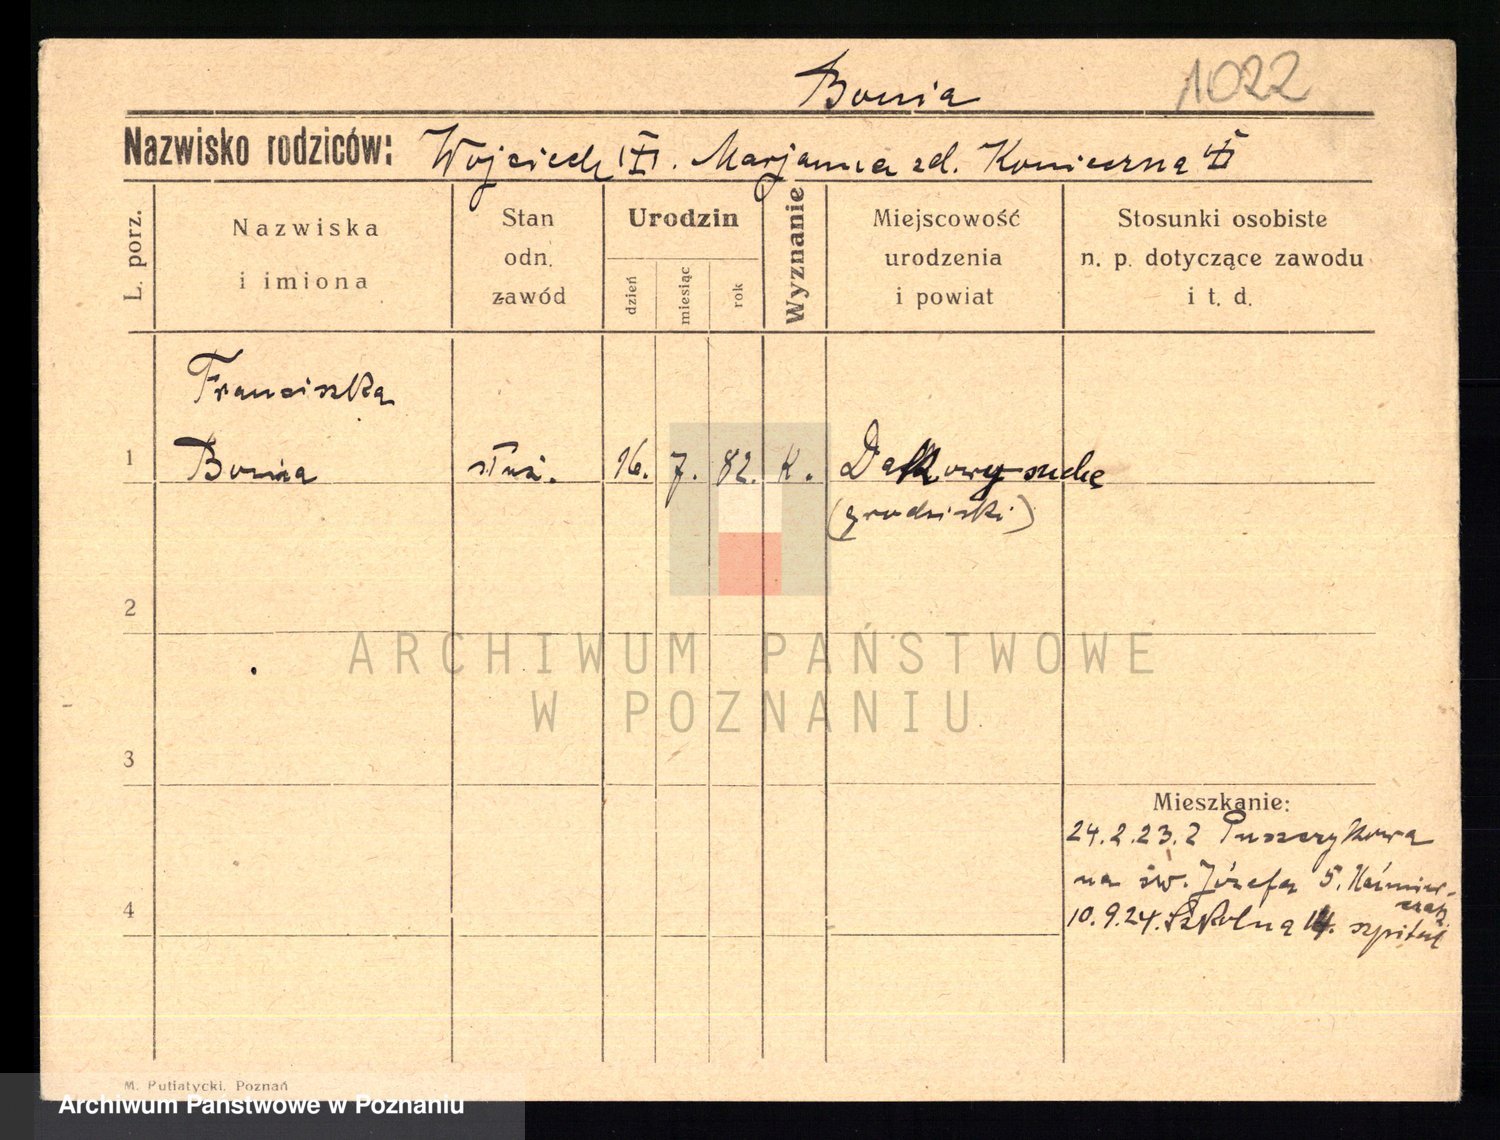 Bonia 1022
Nazwisko rodziców: Wojciech Marjanna zd. Konieczna
L. porz.
Nazwiska
i imiona
Stan
odn.
zawód
Urodzin
dzień
miesiąc
rok
Wyznanie
Miejscowość
urodzenia
i powiat
Stosunki osobiste
n. p. dotyczące zawodu
i t. d.
Franciszka
1 Bonia służ. 16. 7. 82. K. Dakowy suche
(grodziski)
2
ARCHIWUM PAŃSTWOWE
W POZNANIU
3
Mieszkanie:
24.2.23. z Puszczykowa
na św. Józefa 5. Kaźmier-
czak
4
10.9.24. Szkolna 14. szpital
M. Putiatycki, Poznań
Archiwum Państwowe w Poznaniu